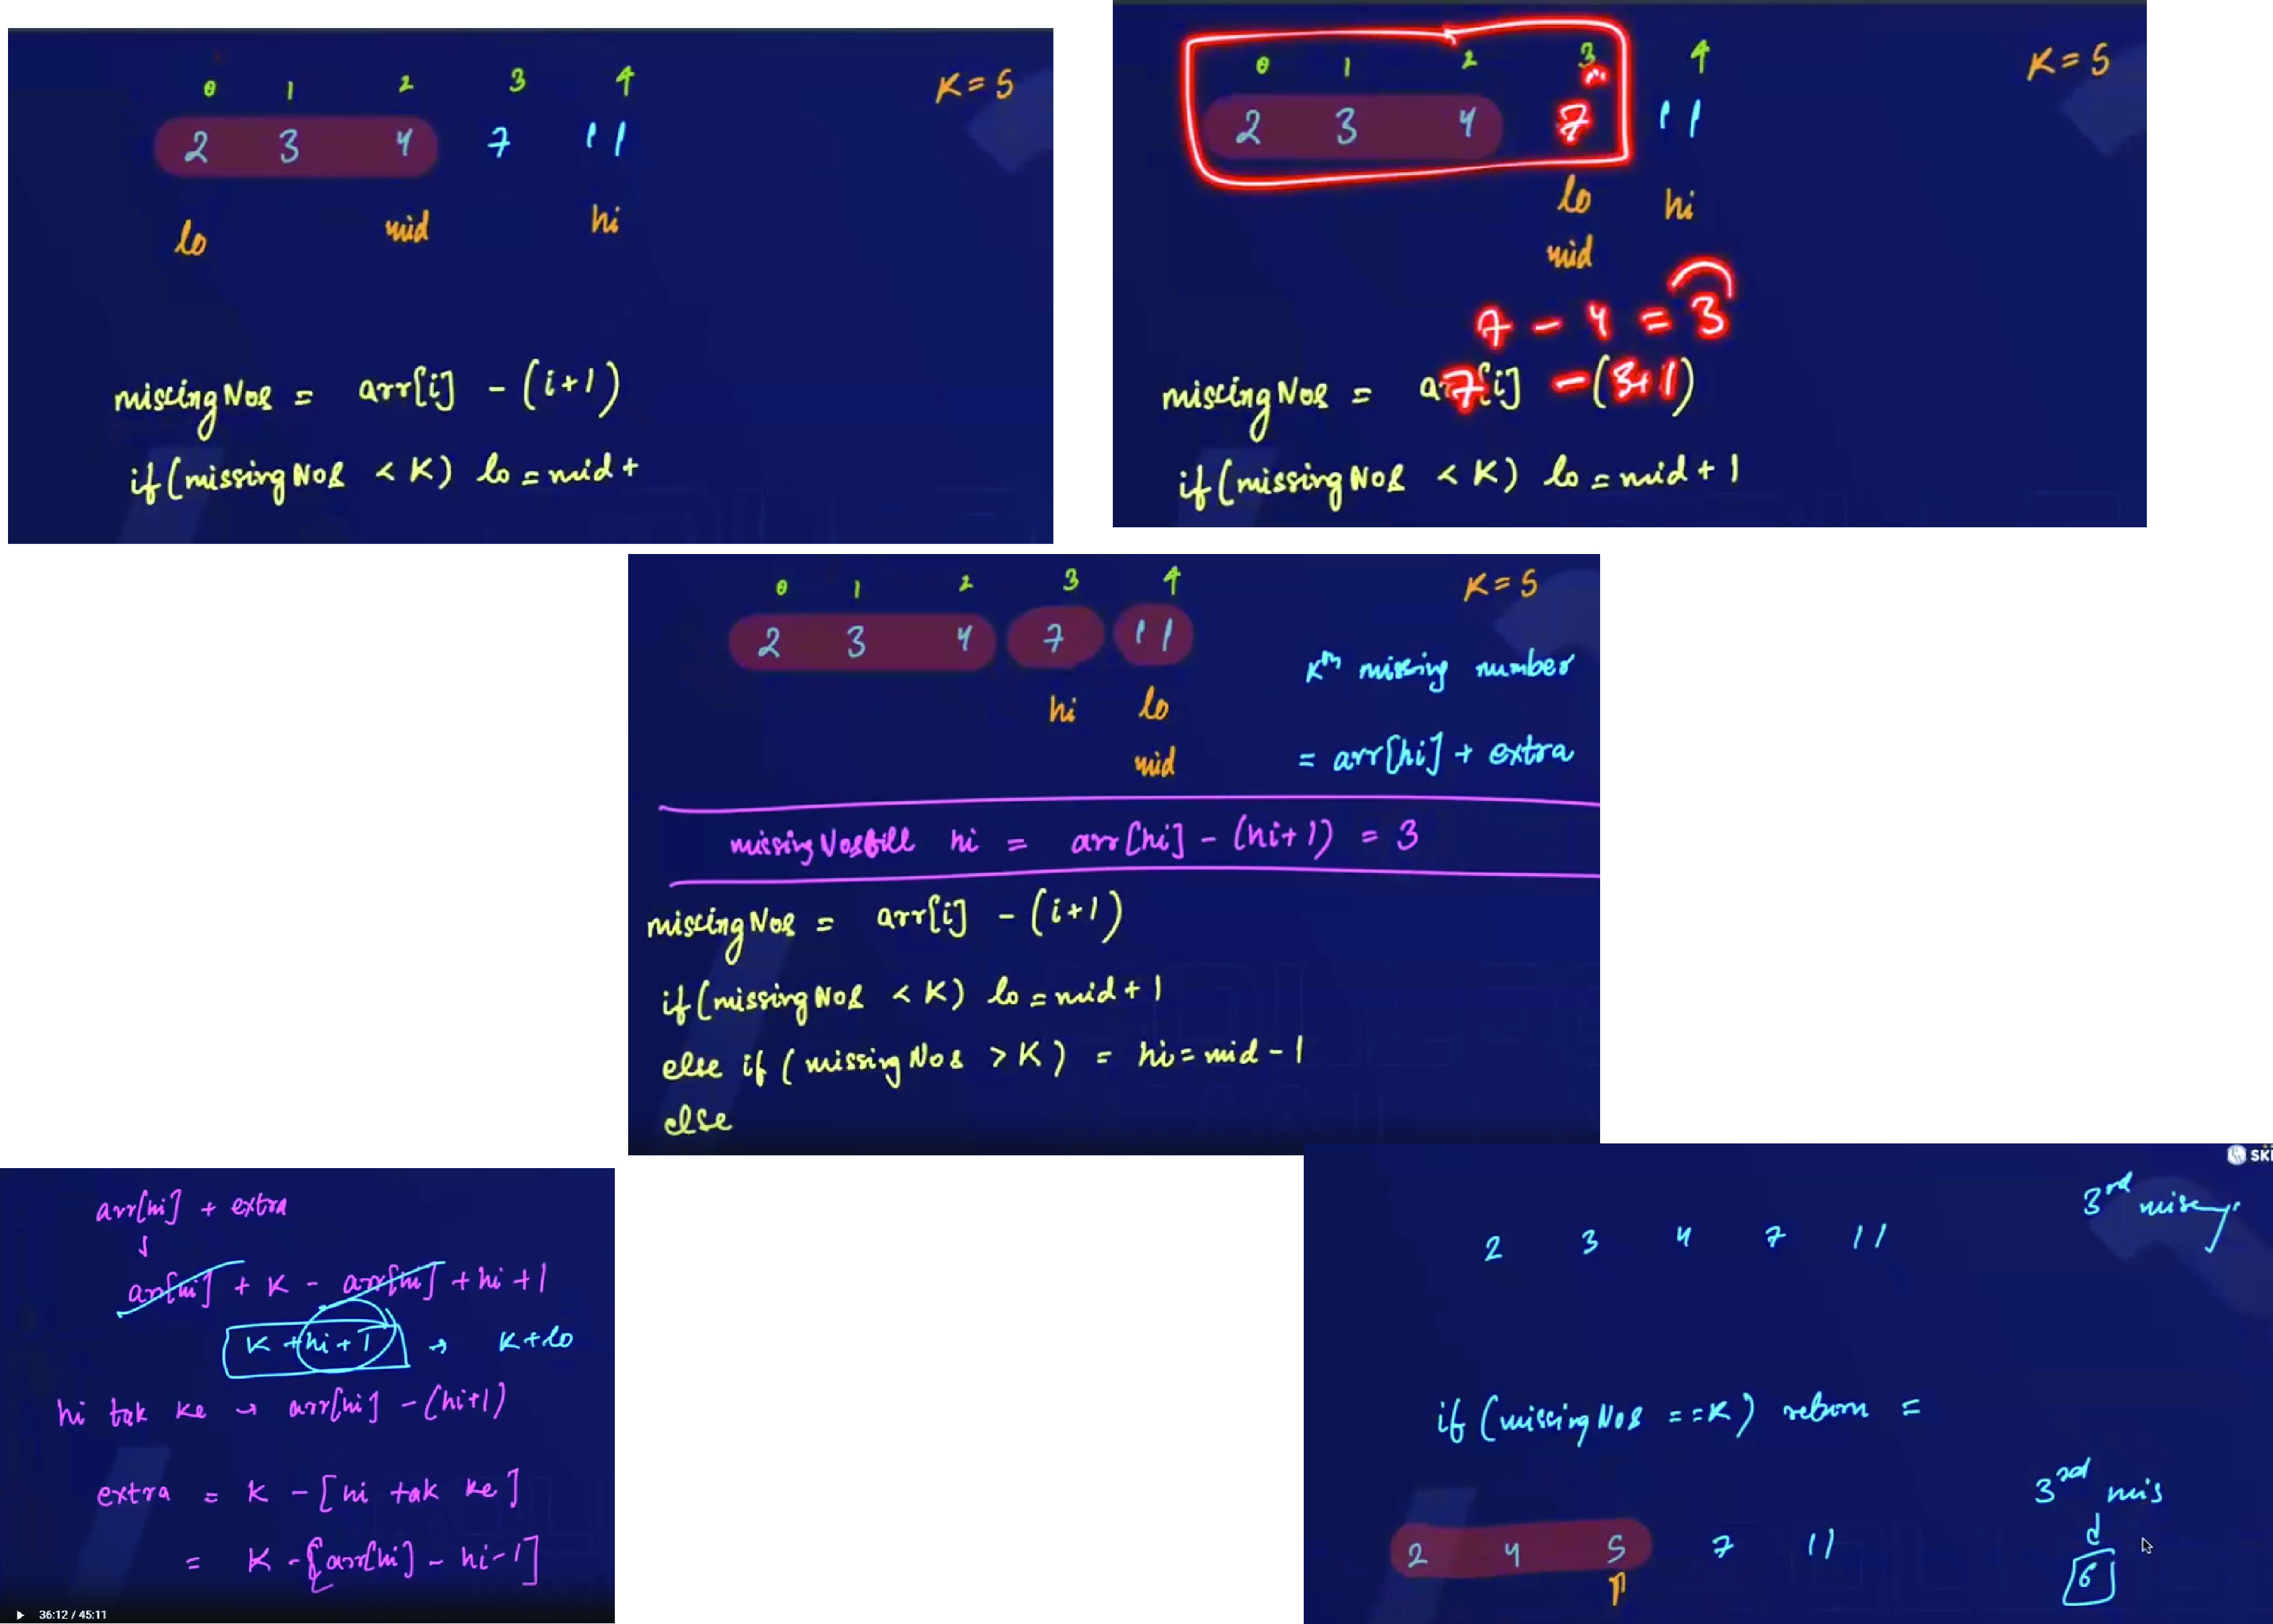 0 1 2 3 4 K = 5
2 3 4 7 11
lo mid hi
missingNos = arr[i] - (i+1)
if (missingNos < K) lo = mid +
0 1 2 3 4 K = 5
2 3 4 7 11
lo hi
mid
7 - 4 = 3
missingNos = 7 - (3+1)
if (missingNos < K) lo = mid + 1
0 1 2 3 4 K = 5
2 3 4 7 11
Kth missing number
hi lo
mid = arr[hi] + extra
missingNostill hi = arr[hi] - (hi+1) = 3
missingNos = arr[i] - (i+1)
if (missingNos < K) lo = mid + 1
else if (missingNos > K) = hi = mid - 1
else
arr[hi] + extra
↓
arr[hi] + K - arr[hi] + hi + 1
K + hi + 1 → K + lo
hi tak ke → arr[hi] - (hi+1)
extra = K - [hi tak ke]
= K - [arr[hi] - hi - 1]
36:12 / 45:11
SKI
3rd missing
2 3 4 7 11
if (missingNos == K) return =
3rd mis
2 4 5 7 11
6